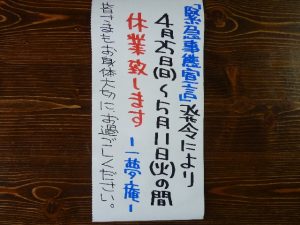 「緊急事態宣言」発令により
4月25日(日)～5月11日(火)の間
休業致します -一夢庵-
皆さまもお身体大切にお過ごしください。